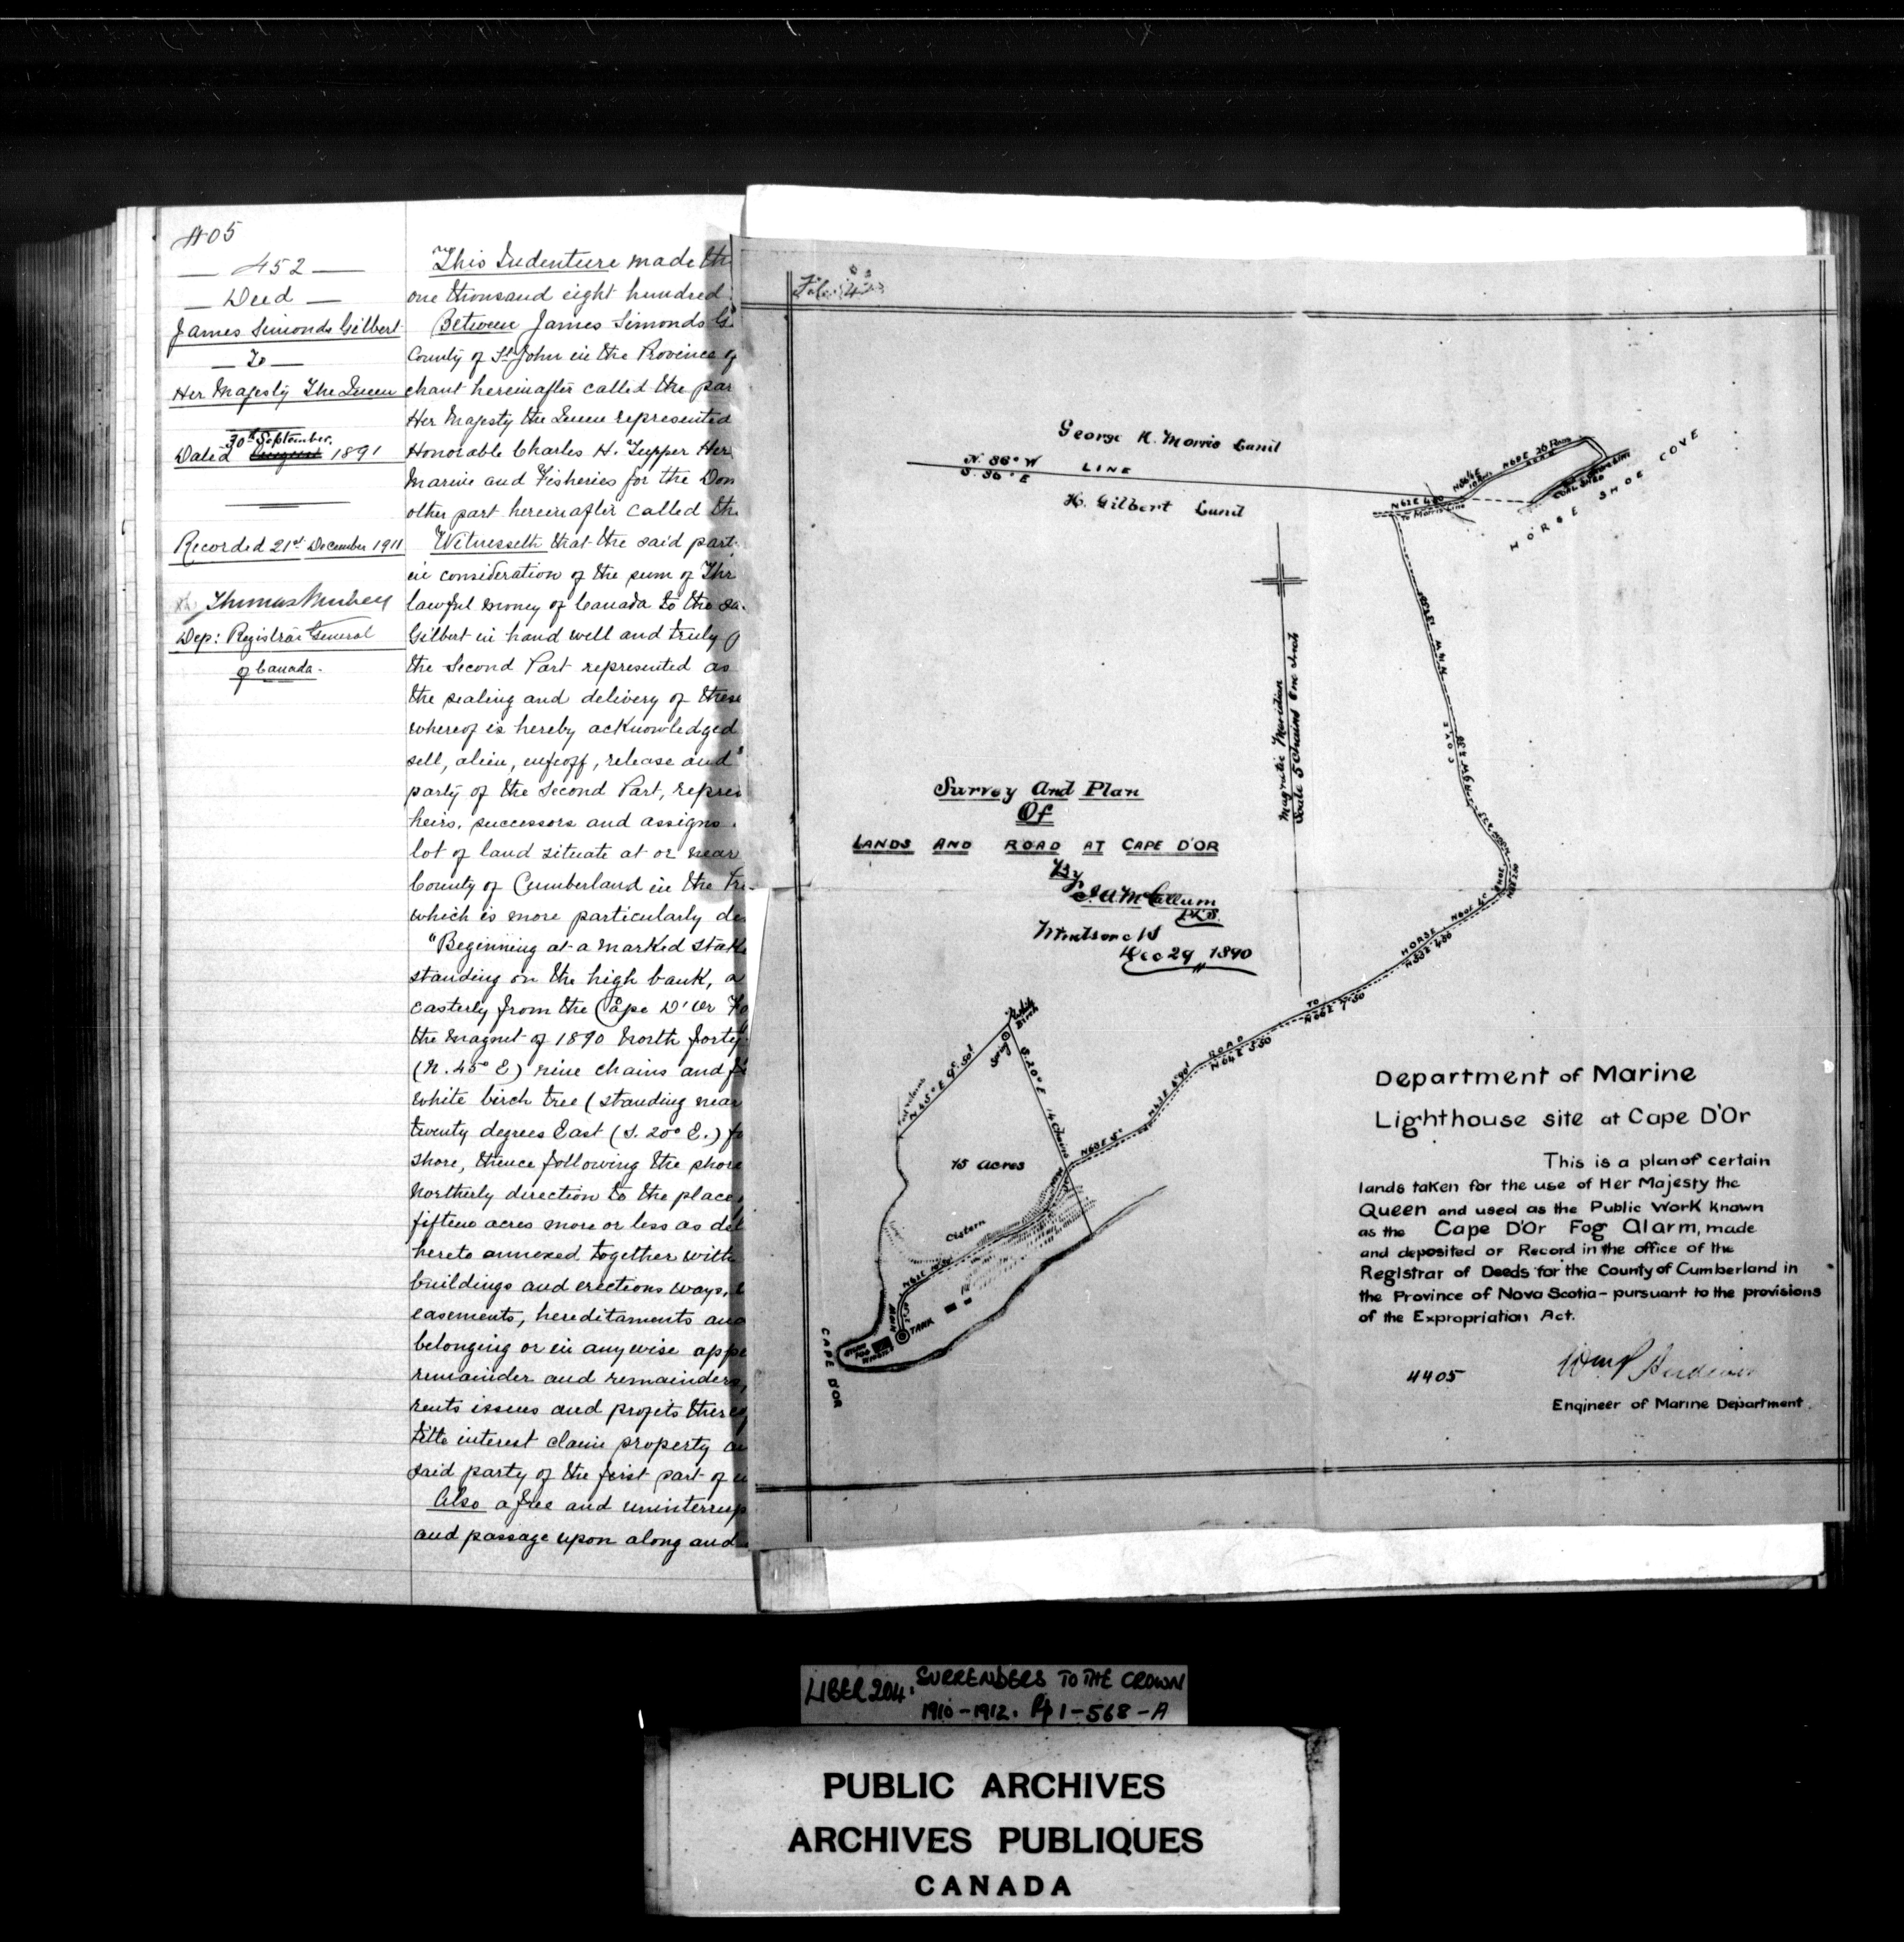 405
452
Deed
James Simonds Gilbert
To
Her Majesty The Queen
30th September
Dated August 1891
Recorded 21st December 1911
Dep: Registrar General
of Canada.
This Indenture made th
one thousand eight hundred
Between James Simonds G
County of St John in the Province of
chant hereinafter called the par
Her Majesty the Queen represented
Honorable Charles H. Tupper Her
Marine and Fisheries for the Dom
other part hereinafter called th
Witnesseth that the said part
in consideration of the sum of Thr
lawful money of Canada to the sa
Gilbert in hand well and truly p
the Second Part represented as
the sealing and delivery of these
whereof is hereby acknowledged
sell, alien, enfeoff, release and
party of the Second Part, repres
heirs, successors and assigns
lot of land situate at or near
County of Cumberland in the Pro-
which is more particularly de
"Beginning at a marked stake
standing on the high bank, a
Easterly from the Cape D'Or Fo
the magnet of 1890 North forty
(N. 45° E) nine chains and fi
white birch tree (standing near
twenty degrees East (S. 20° E.) fo
shore, thence following the shore
Northerly direction to the place
fifteen acres more or less as del
hereto annexed together with
buildings and erections ways,
easements, hereditaments and
belonging or in anywise appe
remainder and remainders,
rents issues and profits thereof
title interest claim property an
said party of the first part of i
Also a free and uninterrup
and passage upon along and
George H. Morris Land
N. 86° W
S. 86° E
LINE
H. Gilbert Land
N62E 4.00
To Morris Line
N60E 26 Rods
COAL SHED
HORSE SHOE COVE
Magnetic Meridian
Scale 5 Chains One Inch
COVE
SHOE
HORSE
TO
ROAD
Survey And Plan
Of
LANDS AND ROAD AT CAPE D'OR
By
Dec 29 1890
White
Birch
Spring
N 45° E 9c. 50l
S. 20° E 14 Chains
15 acres
Cistern
TANK
CAPE D'OR
Department of Marine
Lighthouse site at Cape D'Or
This is a plan of certain
lands taken for the use of Her Majesty the
Queen and used as the Public Work known
as the Cape D'Or Fog Alarm, made
and deposited or Record in the office of the
Registrar of Deeds for the County of Cumberland in
the Province of Nova Scotia - pursuant to the provisions
of the Expropriation Act.
4405
Engineer of Marine Department.
LIBER 204. SURRENDERS TO THE CROWN
1910-1912. Pp 1-568-A
PUBLIC ARCHIVES
ARCHIVES PUBLIQUES
CANADA